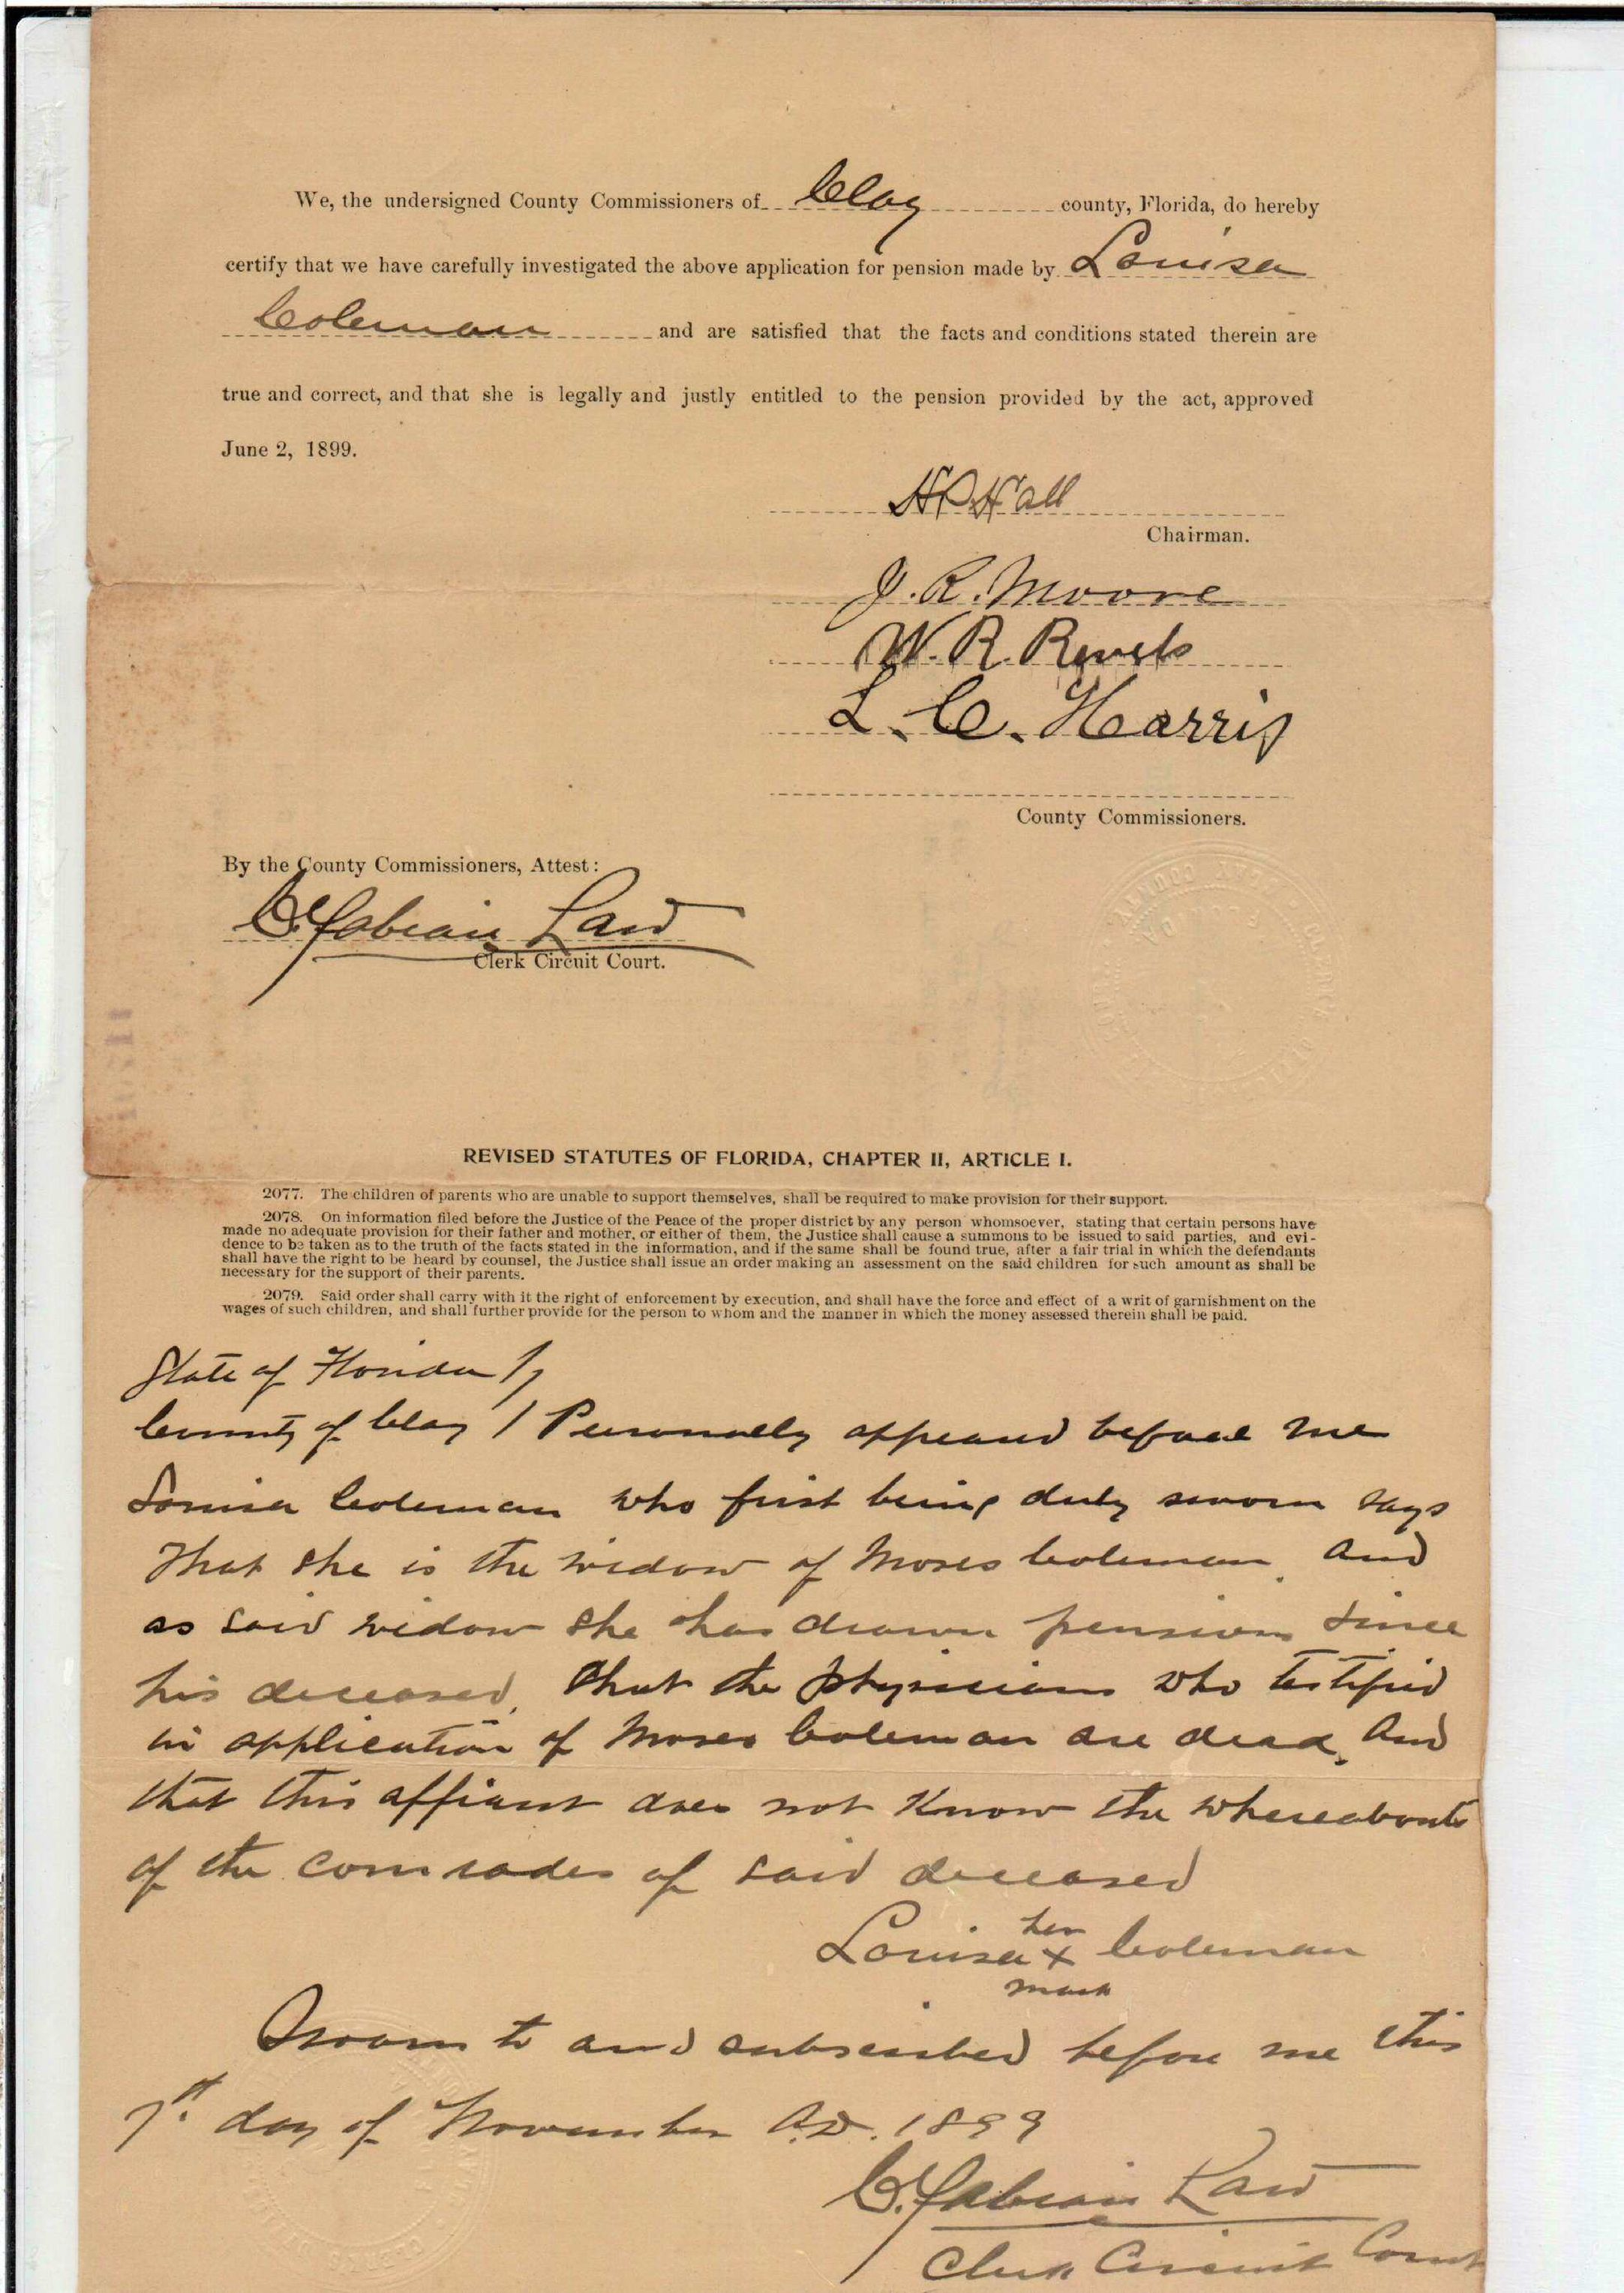 We, the undersigned County Commissioners of Clay county, Florida, do hereby
certify that we have carefully investigated the above application for pension made by Louisa
Coleman and are satisfied that the facts and conditions stated therein are
true and correct, and that she is legally and justly entitled to the pension provided by the act, approved
June 2, 1899.
H P Hall
Chairman.
J. R. Moore
W. R. Revels
L. C. Harris
County Commissioners.
By the County Commissioners, Attest:
C. Fabian Law
Clerk Circuit Court.
REVISED STATUTES OF FLORIDA, CHAPTER II, ARTICLE I.
2077. The children of parents who are unable to support themselves, shall be required to make provision for their support.
2078. On information filed before the Justice of the Peace of the proper district by any person whomsoever, stating that certain persons have
made no adequate provision for their father and mother, or either of them, the Justice shall cause a summons to be issued to said parties, and evi-
dence to be taken as to the truth of the facts stated in the information, and if the same shall be found true, after a fair trial in which the defendants
shall have the right to be heard by counsel, the Justice shall issue an order making an assessment on the said children for such amount as shall be
necessary for the support of their parents.
2079. Said order shall carry with it the right of enforcement by execution, and shall have the force and effect of a writ of garnishment on the
wages of such children, and shall further provide for the person to whom and the manner in which the money assessed therein shall be paid.
State of Florida
County of Clay Personally appeared before me
Louisa Coleman who first being duly sworn says
That she is the widow of Moses Coleman. And
as said widow she has drawn pension since
his deceased, that the physicians who testified
in application of Moses Coleman are dead, And
that this affiant does not Know the whereabouts
of the comrades of said deceased
her
Louisa x Coleman
mark
Sworn to and subscribed before me this
day of November A.D. 1899
C. Fabian Law
Clerk Circuit Court